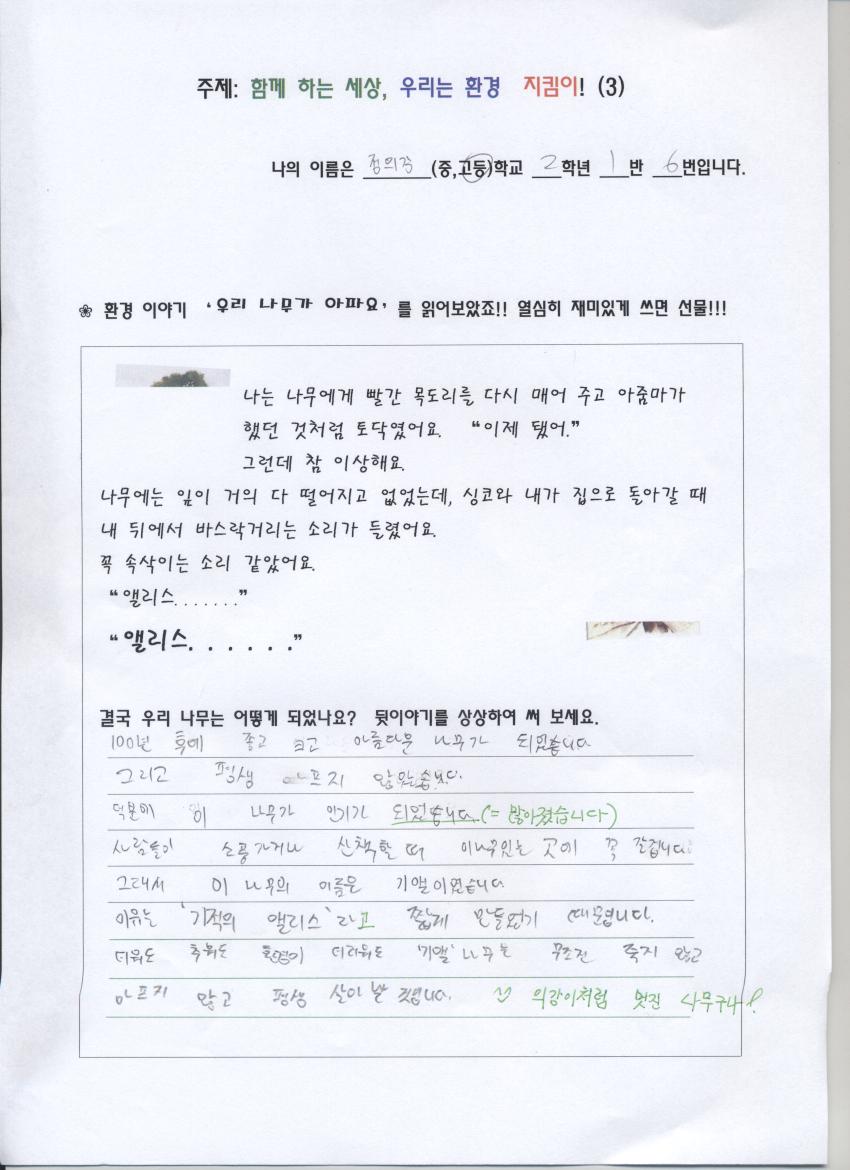 주제: 함께 하는 세상, 우리는 환경 지킴이! (3)
나의 이름은 (중,고등)학교 2학년 1반 6번입니다.
❀ 환경 이야기 ‘우리 나무가 아파요’ 를 읽어보았죠!! 열심히 재미있게 쓰면 선물!!!
나는 나무에게 빨간 목도리를 다시 매어 주고 아줌마가
했던 것처럼 토닥였어요. “이제 됐어.”
그런데 참 이상해요.
나무에는 잎이 거의 다 떨어지고 없었는데, 싱코와 내가 집으로 돌아갈 때
내 뒤에서 바스락거리는 소리가 들렸어요.
꼭 속삭이는 소리 같았어요.
“앨리스.......”
“앨리스. . . . . .”
결국 우리 나무는 어떻게 되었나요? 뒷이야기를 상상하여 써 보세요.
100년 후에 좋고 크고 아름다운 나무가 되었습니다
그리고 평생 아프지 않았습니다.
덕분에 이 나무가 인기가 되었습니다. (= 많아졌습니다)
사람들이 소풍가거나 산책할 때 이나무있는 곳에 꼭 갑니다.
그래서 이 나무의 이름은 기앨이었습니다.
이유는 '기적의 앨리스'라고 짧게 만들었기 때문입니다.
더워도 추워도 환경이 더러워도 '기앨'나무는 무조건 죽지 않고
아프지 않고 평생 살아 입니다. 의강이처럼 멋진 나무구나!